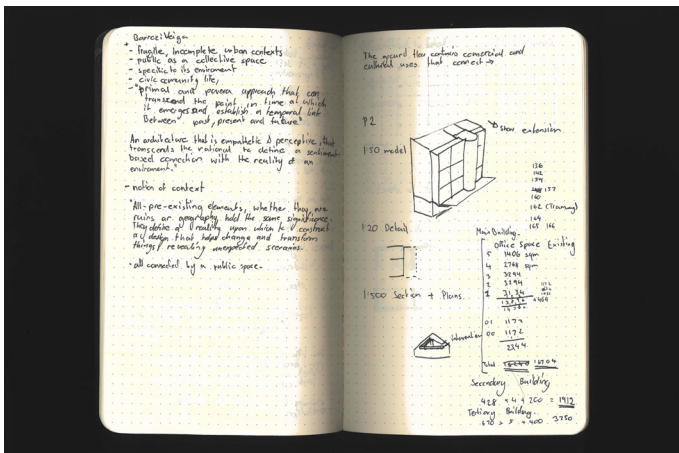 Barozzi Veiga
- fragile, incomplete urban contexts
- public as a collective space
- specific to its enviroment
- civic comunity life,
- "primal and povera approach that can
transcend the point in time at which
it emerges and establish a temporal link
Between past, present and future"
An architecture that is empathetic & perceptive, that
transcends the rational to define a sentiment
based connection with the reality of an
enviroment."
- notion of context
"All pre-existing elements, whether they are
ruins or geography, hold the same significance.
They define a reality upon which to construct
a design that helps change and transform
things, revealing unexpected scenarios.
- all connected by a public space -
The ground floor contains comercial and
cultural uses that connect →
P2
show extension
1:50 model
136
142
154
157
160
162 (Tramway)
164
165 166
1:20 Detail
Main Building -
Office Space Existing
5 1406 sqm
4 2768 sqm
3 3294
2 3294
1 3134
1:500 Section + Plans.
01 1172
00 1172
2344
intervention
Total 16704
Secondary Building
428 × 4 + 200 = 1912
Tertiary Building.
670 × 5 + 400 3750